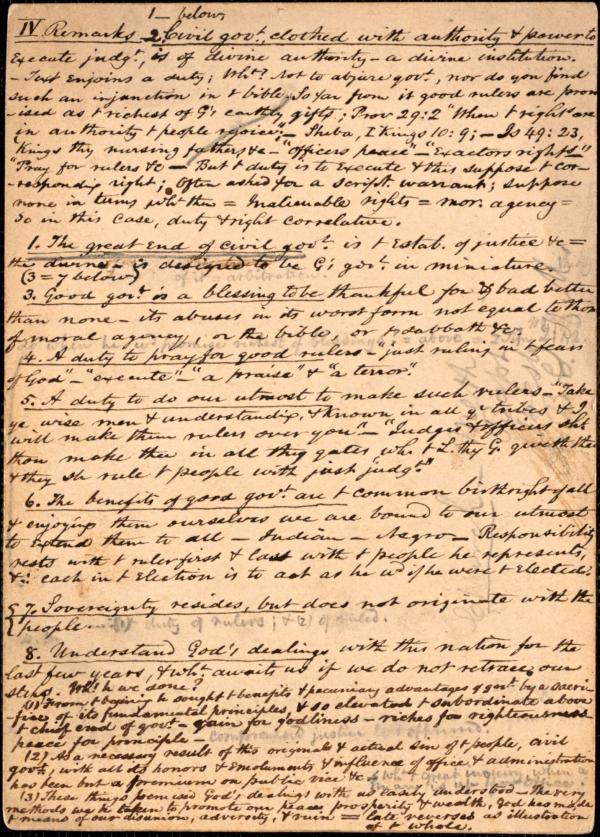 1 – below
IV Remarks – 2. Civil govt. clothed with authority & power to
execute judgt. is of divine authority – a divine institution.
– Text enjoins a duty; Wht? Not to abjure govt, nor do you find
such an injunction in t bible. So far from it good rulers are prom
-ised as t richest of G's earthly gifts; Prov 29:2 "When t righte. are
in authority t people rejoice; – Sheba, I Kings 10:9; – Is 49:23,
Kings thy nursing fathers &c – "officers peace" – "Exactors rights"
"Pray for rulers &c – But t duty is to Execute & this suppose t cor-
-respondix right; Often asked for a script. warrant; suppose
none in terms wht then = Inalienable rights = mor. agency =
So in this case, duty & right correlative.
1. The great End of Civil govt. is t Estab. of justice &c =
the divine – is designed to be G's govt. in miniature.
(3 = 7 below)
3. Good govt. is a blessing to be thankful for & bad better
than none – its abuses in its worst form not equal to those
of moral agency, or the bible, or t sabbath &c.
4. A duty to pray for good rulers – "just ruling in t fear
of God" – "execute" – "a praise" & "a terror".
5. A duty to do our utmost to make such rulers – "Take
ye wise men & understandix, & known in all yr tribes & I
will make them rulers over you" – "Judges & officers sht
thou make thee in all thy gates wh. t L. thy G. giveth thee
& they sh rule t people with just judgt."
6. The benefits of good govt. are t common birthright of all
& enjoying them ourselves we are bound to our utmost
to extend them to all – Indian – Negro – Responsibility
rests with t ruler first & last with t people he represents,
& each in t Election is to act as he wd if he were t Elected.
§ 7. Sovereignty resides, but does not originate with the
people. – duty of rulers; & 2) of ruled.
8. Understand God's dealings with this nation for the
last few years, & wht awaits us if we do not retrace our
steps. Wht h we done?
(1) From t beginix h sought t benefits & pecuniary advantages of govt. by a sacri-
fice of its fundamental principles, & so elevated t subordinate above
t chief end of govt – gain for godliness – riches for righteousness
peace for principle –
(2) As a necessary result of this original & actual sin of t people, civil
govt., with all its honors & emoluments & influence of office & administration
has been but a premium on public vice &c –
(3) These things premised God's dealings with us easily understood – The very
methods we h taken to promote our peace prosperity & wealth, God has made
t means of our disunion, adversity, & ruin = late reverses as illustration
of t whole.